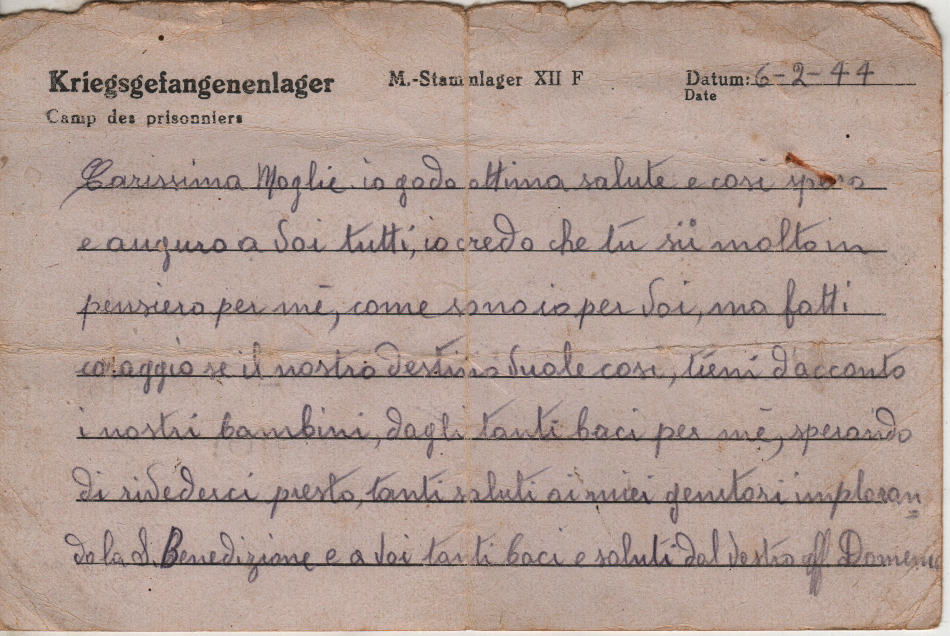 Kriegsgefangenenlager M.-Stammlager XII F Datum: 6-2-44
Camp des prisonniers Date
Carissima Moglie io godo ottima salute e cosi spero
e auguro a voi tutti, io credo che tu sii molto in
pensiero per mè, come sono io per voi, ma fatti
coraggio se il nostro destino vuole cosi, tieni d'acconto
i nostri bambini, dagli tanti baci per mè, sperando
di rivederci presto, tanti saluti ai miei genitori imploran=
do la S. Benedizione e a voi tanti baci e saluti dal vostro aff Domenic